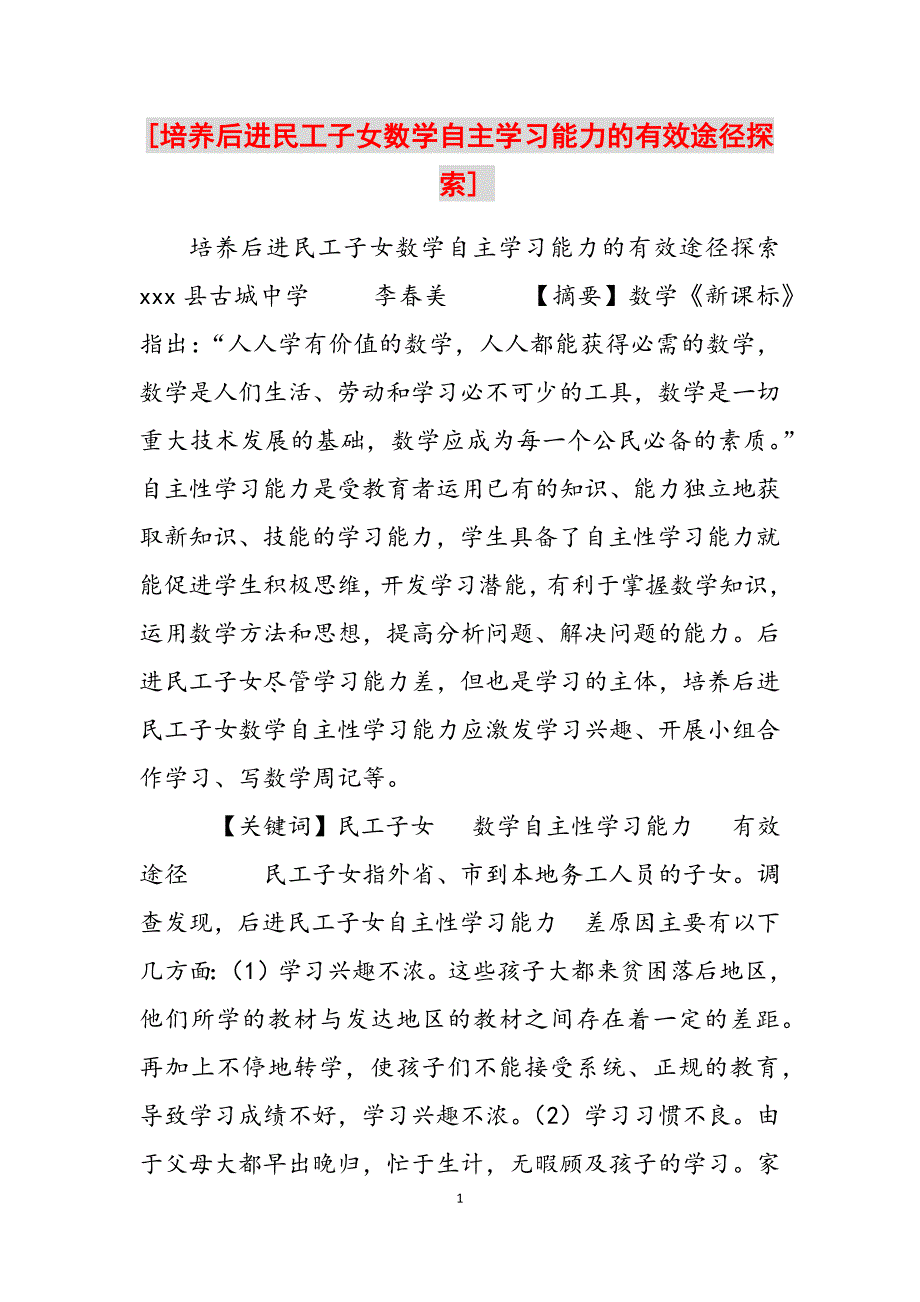 [培养后进民工子女数学自主学习能力的有效途径探
索]
培养后进民工子女数学自主学习能力的有效途径探索
xxx 县古城中学 李春美 【摘要】数学《新课标》
指出：“人人学有价值的数学，人人都能获得必需的数学，
数学是人们生活、劳动和学习必不可少的工具，数学是一切
重大技术发展的基础，数学应成为每一个公民必备的素质。”
自主性学习能力是受教育者运用已有的知识、能力独立地获
取新知识、技能的学习能力，学生具备了自主性学习能力就
能促进学生积极思维，开发学习潜能，有利于掌握数学知识，
运用数学方法和思想，提高分析问题、解决问题的能力。后
进民工子女尽管学习能力差，但也是学习的主体，培养后进
民工子女数学自主性学习能力应激发学习兴趣、开展小组合
作学习、写数学周记等。
【关键词】民工子女 数学自主性学习能力 有效
途径 民工子女指外省、市到本地务工人员的子女。调
查发现，后进民工子女自主性学习能力 差原因主要有以下
几方面：（1）学习兴趣不浓。这些孩子大都来贫困落后地区，
他们所学的教材与发达地区的教材之间存在着一定的差距。
再加上不停地转学，使孩子们不能接受系统、正规的教育，
导致学习成绩不好，学习兴趣不浓。（2）学习习惯不良。由
于父母大都早出晚归，忙于生计，无暇顾及孩子的学习。家
1